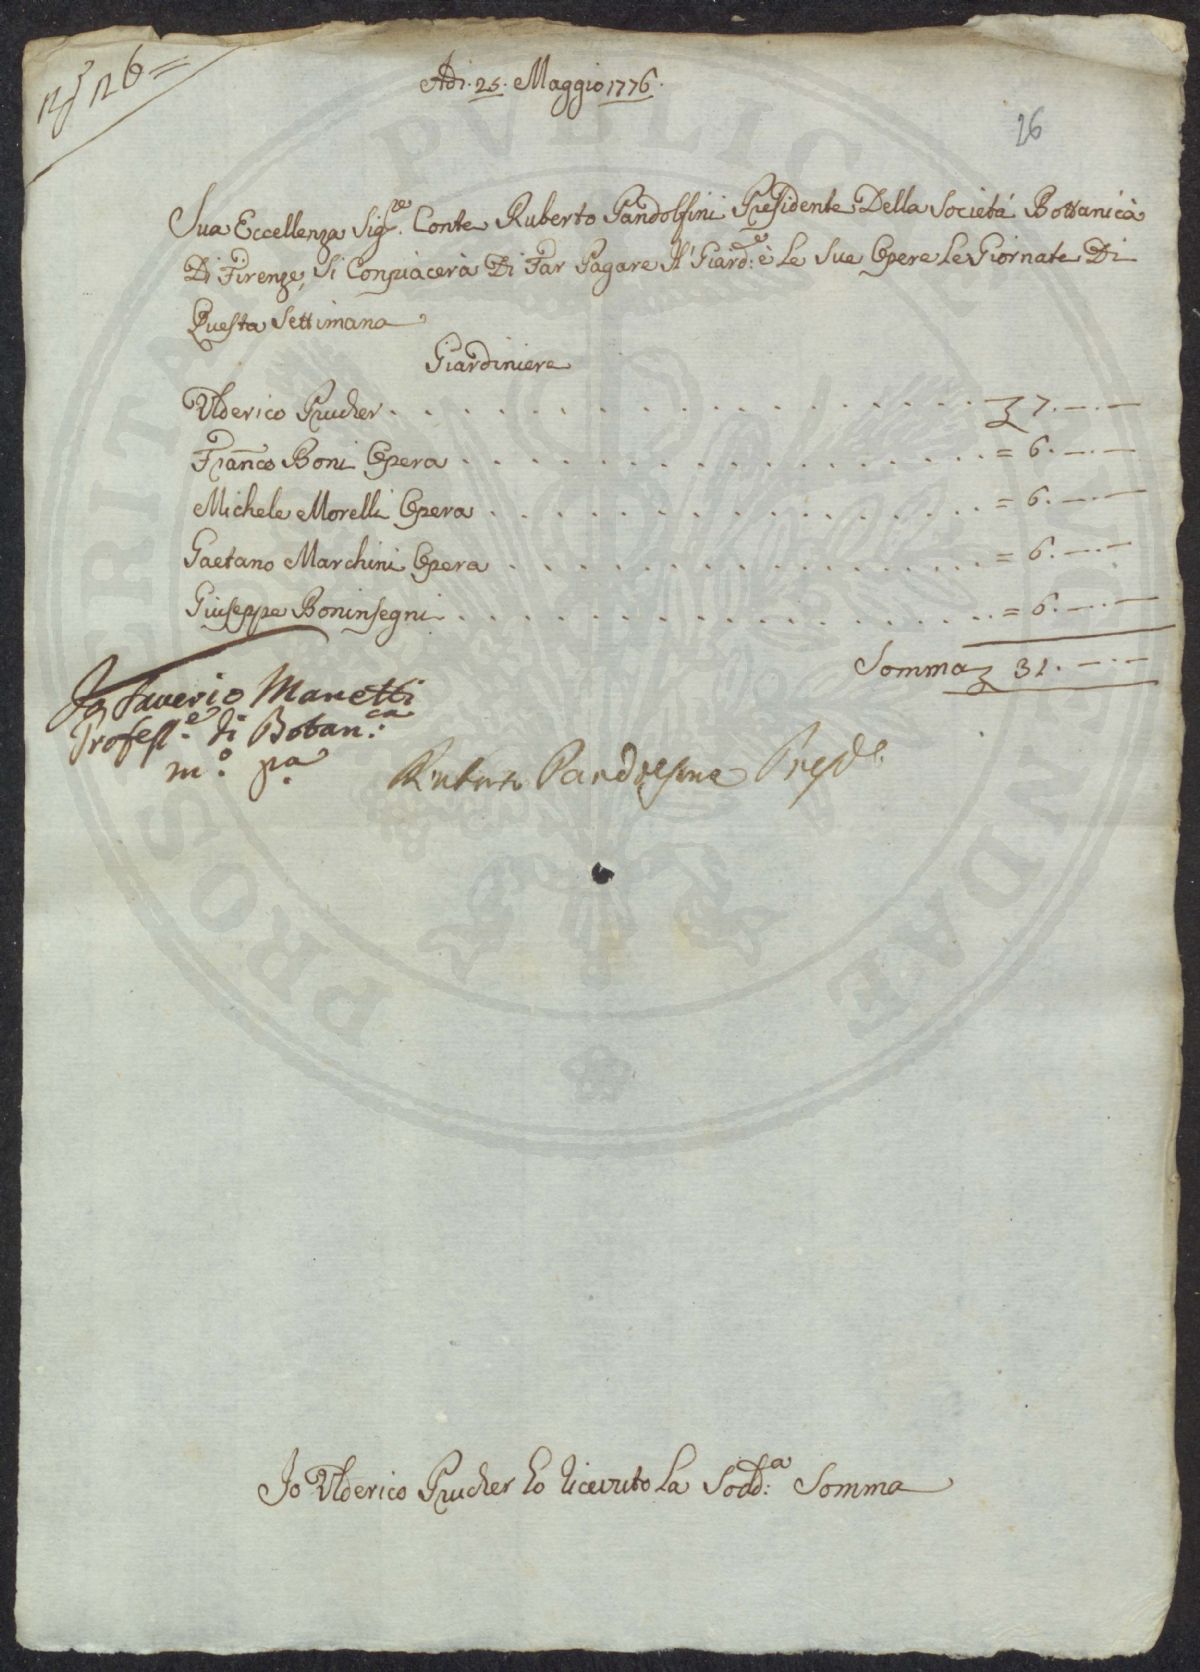 26
Adi. 25. Maggio 1776.
26
Sua Eccellenza Sig.re Conte Ruberto Pandolfini Presidente Della Società Bottanicà
Di Firenze, Si Conpiacerà Di Far Pagare Il Giard:e è Le Sue Opere Le Giornate Di
Questa Settimana
Giardiniere
Ulderico Prucher . . . . . . . . . . . . . . . . 7. — . —
Franco Boni Opera . . . . . . . . . . . . . . . = 6. — . —
Michele Morelli Opera . . . . . . . . . . . . . . = 6. — . —
Gaetano Marchini Opera . . . . . . . . . . . . . . = 6. — . —
Giuseppe Boninsegni . . . . . . . . . . . . . . . = 6. — . —
Somma 31. — . —
Io Saverio Manetti
Profess.e di Botan.ca
m.o p.a
Ruberto Pandolfini Presid.e
Io Ulderico Prucher ho ricevuto La Sodd:a Somma
PROSPERITATI PVBLICAE AVGENDAE